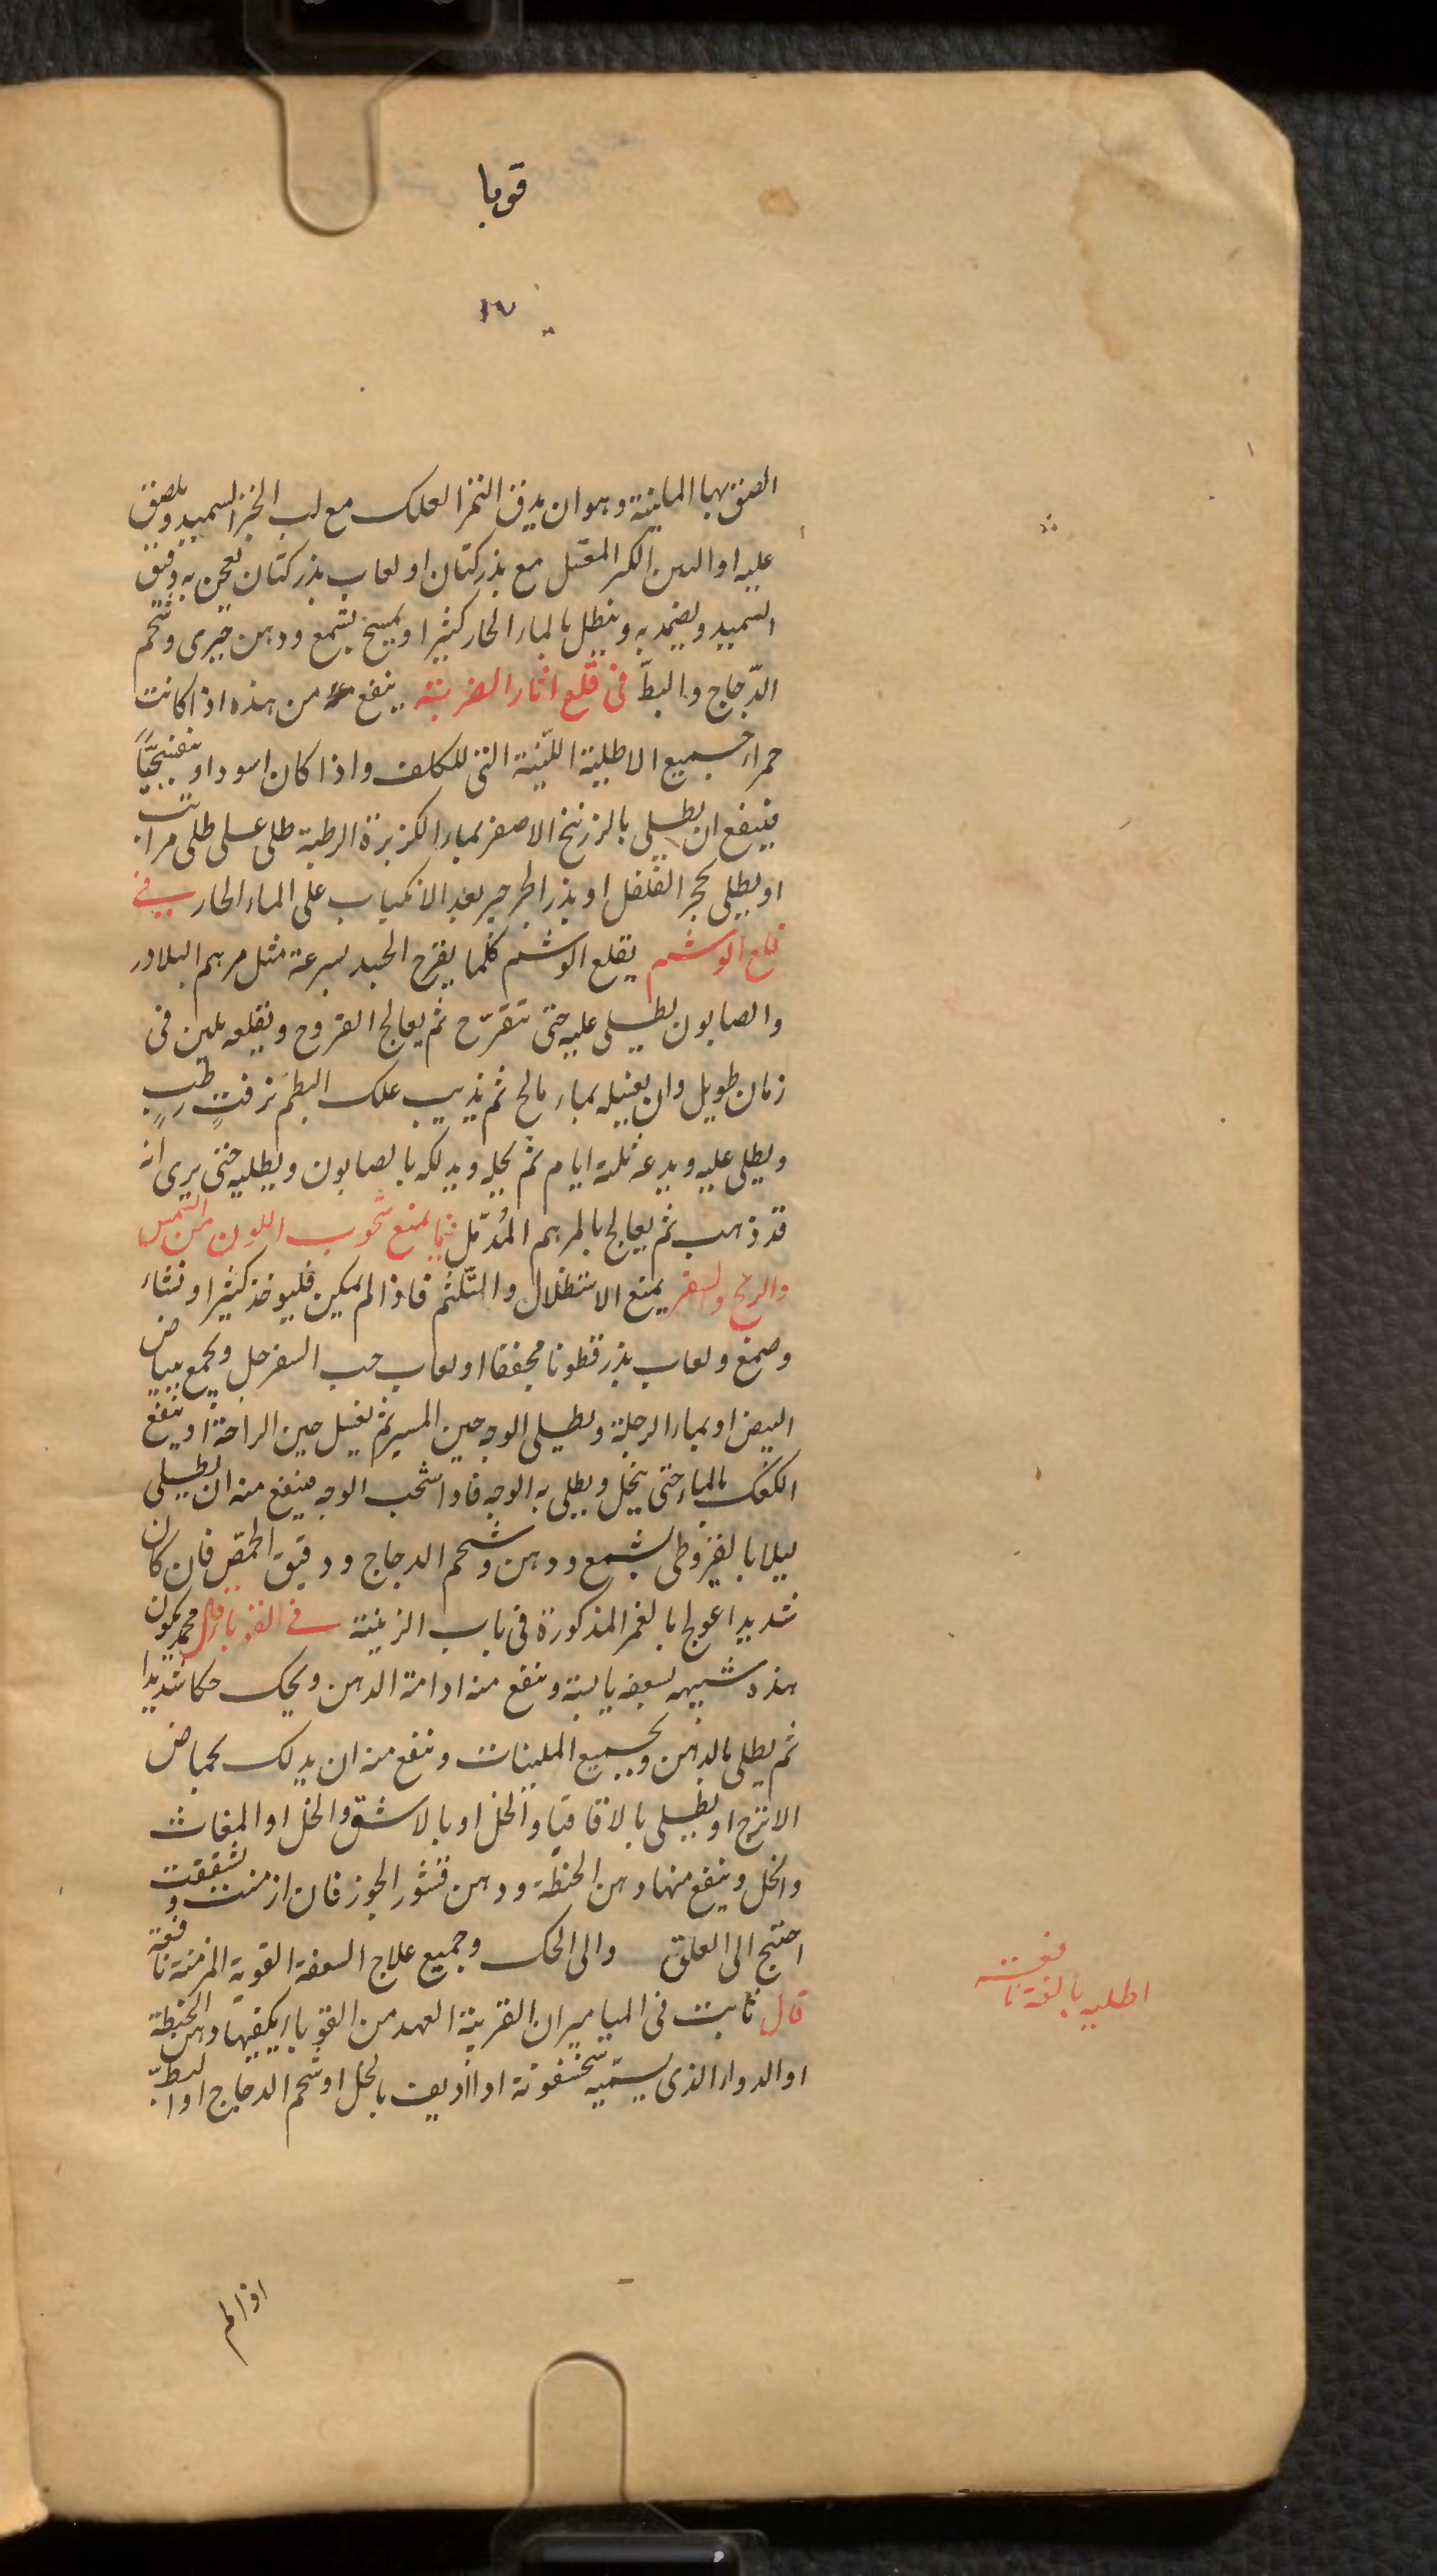 قوبا
١٧
الصق بها الملينة وهو ان يدق التمر العلك مع لب الخبز السميد ويلصق
عليه او اللبن الكر المقبل مع بذر كتان او لعاب بذر كتان يعجن به دقيق
السميد ويضمد به وينطل بالماء الحار كثيرا ويمسح بشمع ودهن خيرى وشحم
الدّجاج والبطّ فى قلع اثار الضربة ينفع من هذه اذا كانت
حمراء جميع الاطلية اللّينة التى للكلف واذا كان اسود او بنفسجيًّا
فينفع ان يطلى بالزرنيخ الاصفر بماء الكزبرة الرطبة طلى على طلى مرات
او يطلى بحجر الفلفل او بذر الجرجير بعد الانكباب على الماء الحار فى
قلع الوشم يقلع الوشم كلما يقرح الجلد بسرعة مثل مرهم البلادر
والصابون يطلى عليه حتى تتقرّح ثم يعالج القروح ويقلعه بلين فى
زمان طويل وان يغسله بماء مالح ثم يذيب علك البطم بزفتٍ رطبٍ
ويطلى عليه ويدعه ثلثة ايام ثم يحله ويدلكه بالصابون ويطليه حتى يرى انه
قد ذهب ثم يعالج بالمرهم المُدمّل فيما يمنع شحوب اللون من الشمس
والريح والسفر يمنع الاستظلال والتّلثم فاذا لم يمكن فليوخذ كثيرا ونشاء
وصمغ ولعاب بذر قطونا مجففا او لعاب حب السفرجل ويجمع ببياض
البيض او بماء الرجلة ويطلى الوجه حين المسير ثم يغسل حين الراحة او ينقع
الكعك بالماء حتى ينحل ويطلى به الوجه فاذا شحب الوجه فينفع منه ان يطلى
ليلا بالقيروطى بشمع ودهن وشحم الدجاج ودقيق الحمّص فان كان
شديدا عولج بالغمر المذكورة فى باب الزينة فى القوبا قال محمد يكون
هذه شبيهه بسعفه يابسة وينفع منه ادامة الدهن ويحك حكا شديدا
ثم يطلى بالدهن وبجميع الملينات وينفع منه ان يدلك بحماض
الاترج او يطلى بالاقاقيا والخل او بالاشق والخل او المغاث
والخل وينفع منها دهن الحنطة ودهن قشور الجوز فان ازمنت وتشققت
احتيج الى العلق والى الحك وجميع علاج السعفة القوية المزمنة نافعة
قال ثابت فى الميامير ان القريبة العهد من القوباء يكفيها دهن الحنطة
او الدواء الذى يسمّيه سخنفونة اذا اديف بالخل او شحم الدجاج او البطّ
اطليه بالغة نافعة
اذا لم